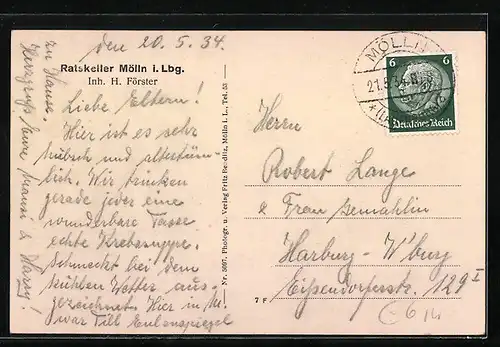 den 20.5.34.
Ratskeller Mölln i. Lbg.
Inh. H. Förster
Liebe Eltern!
Hier ist es sehr
hübsch und altertüm-
lich. Wir trinken
gerade jeder eine
wunderbare Tasse
echte Krebssuppe.
Schmeckt bei dem
kühlen Wetter aus-
gezeichnet. Hier in M.
war Till Eulenspiegel
zu Hause.
Herzgruß Eure Mausi & Harry!
Nr. 8697. Photogr. u. Verlag Fritz Benditz, Mölln i. L., Tel. 53
7 F
MÖLLN
21.5.34.
6 6
Deutsches Reich
Herrn
Robert Lange
& Frau Gemahlin
Harburg-W'burg
Eißendorferstr. 129 I